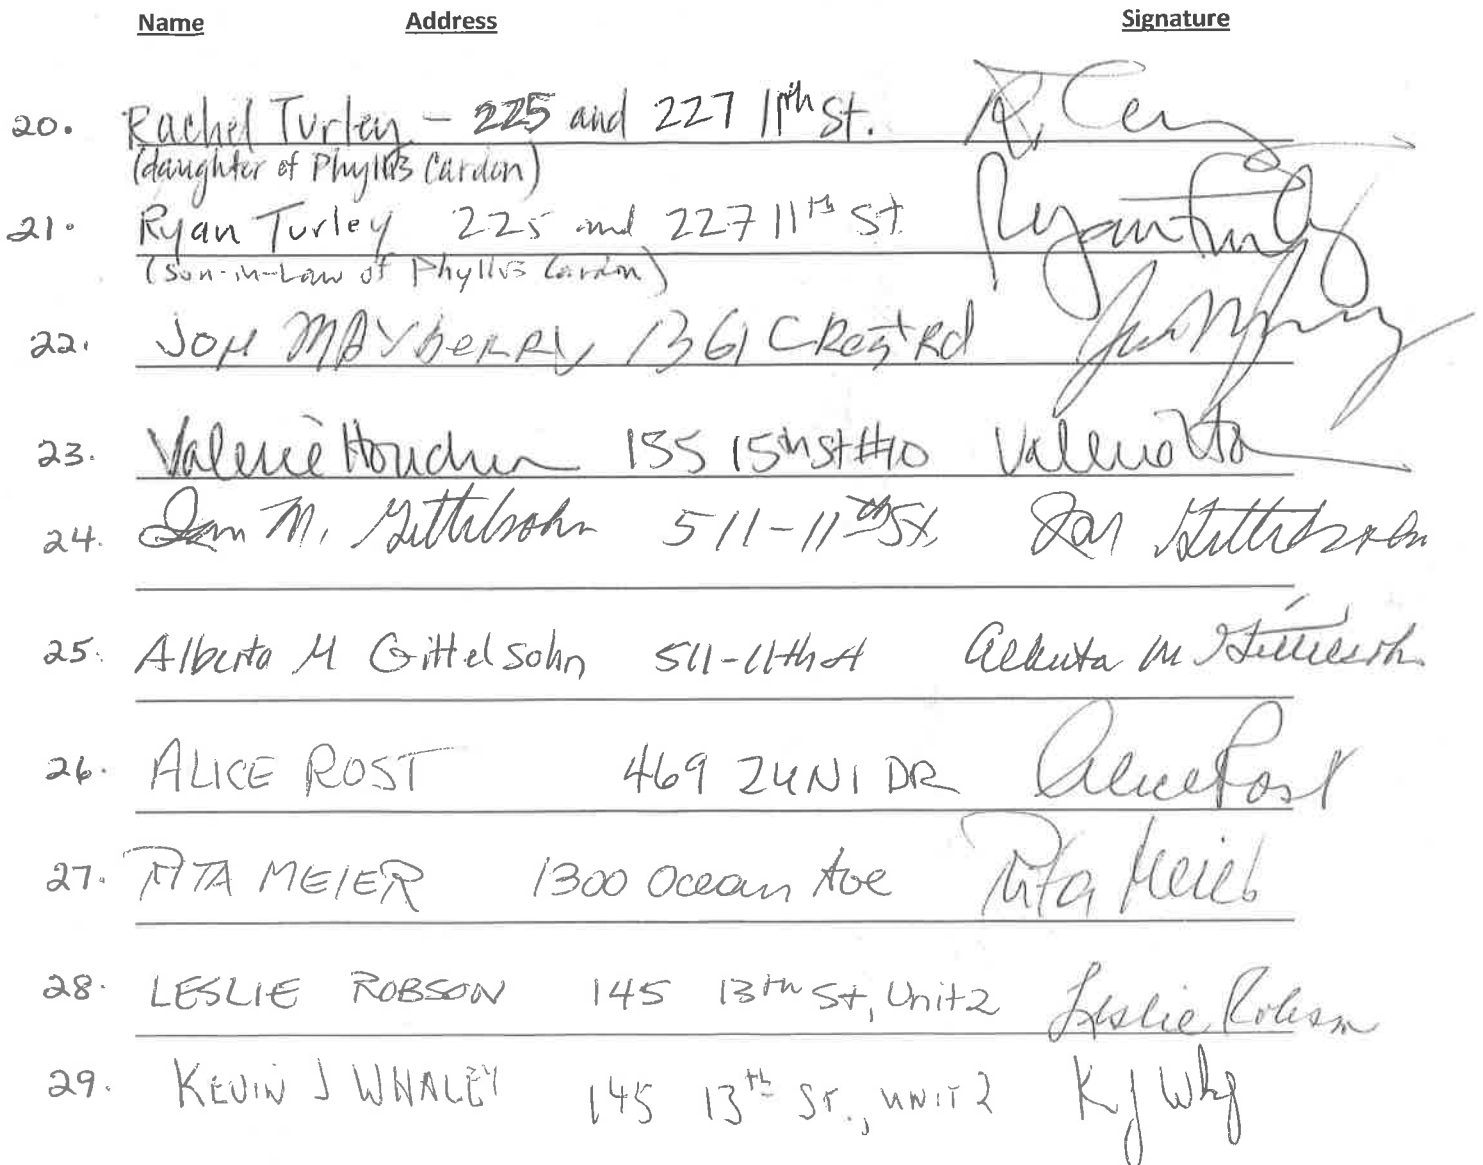 Name Address Signature
20. Rachel Turley - 225 and 227 11th St.
(daughter of Phyllis Cardon)
21. Ryan Turley 225 and 227 11th St. Ryan Turley
(son-in-law of Phyllis Cardon)
22. JON MAYberRRy 1361 CRest Rd
23. Valerie 155 15th St #10 Valerie
24. M. Gittelsohn 511-11th St. Gittelsohn
25. Alberta M Gittelsohn 511-11th st Alberta M Gittelsohn
26. ALICE ROST 469 ZUNI DR Alice Rost
27. RITA MEIER 1300 Ocean Ave Rita Meier
28. LESLIE ROBSON 145 13th St, Unit 2 Leslie Robson
29. KEVIN J WHALEY 145 13th ST., UNIT 2 KJ Whly